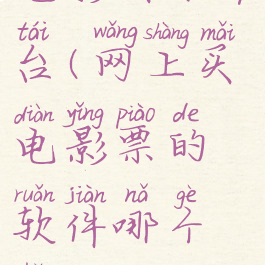 tái wǎng shàng mǎi
台(网上买
diàn yǐng piào de
电影票的
ruǎn jiàn nǎ gè
软件哪个